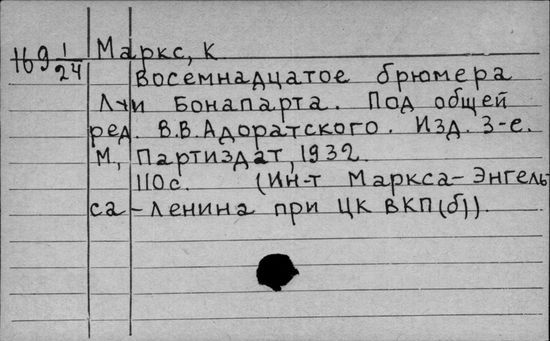 169 1/24 Маркс, К
Восемнадцатое брюмера
Луи Бонапарта. Под общей
ред. В.В.Адоратского. Изд. 3-е.
М., Партиздат, 1932.
110с. (Ин-т Маркса-Энгель
са-Ленина при ЦК ВКП(б)).